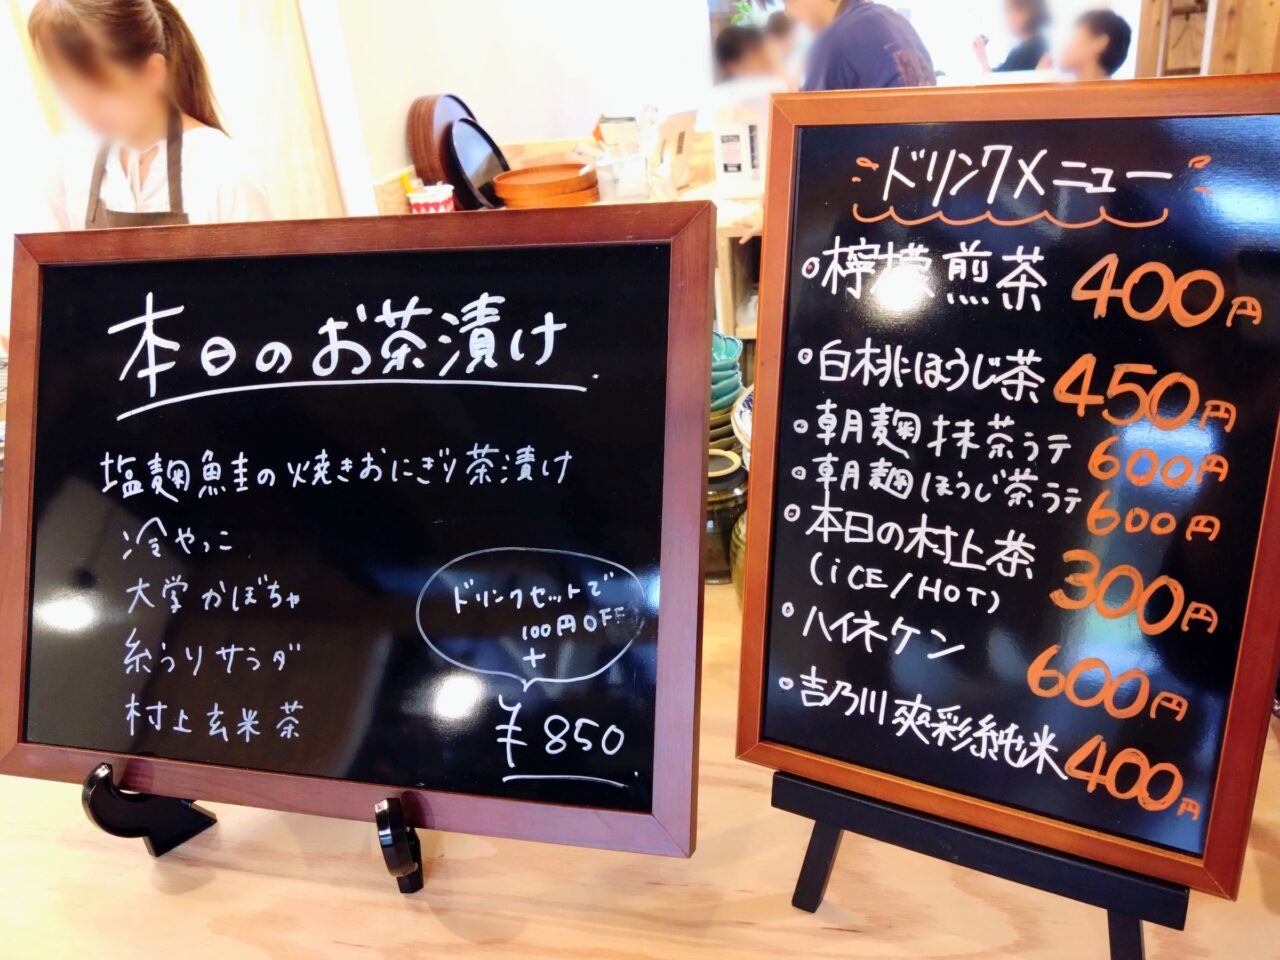 本日のお茶漬け
塩麹鮭の焼きおにぎり茶漬け
冷やっこ
大学かぼちゃ
糸うりサラダ
村上玄米茶
ドリンクセットで
100円OFF
+
¥850
ドリンクメニュー
檸檬煎茶 400円
白桃ほうじ茶 450円
朝麹抹茶ラテ 600円
朝麹ほうじ茶ラテ 600円
本日の村上茶 300円
(iCE/HOT)
ハイネケン 600円
吉乃川爽彩純米 400円